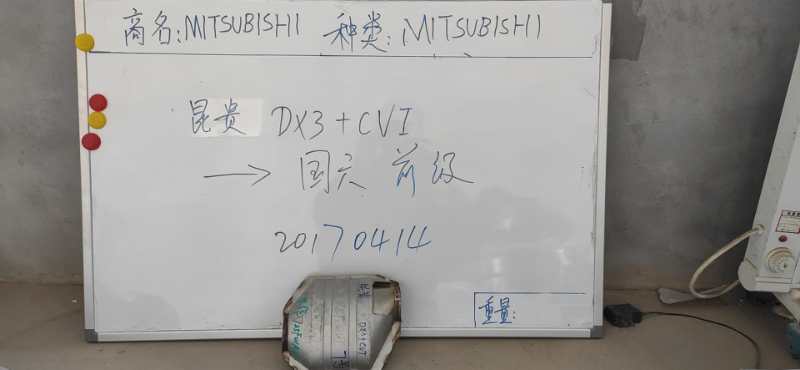 商名:MITSUBISHI 种类:MITSUBISHI
昆贵 DX3+CVI
→ 国六 前级
20170414
重量: